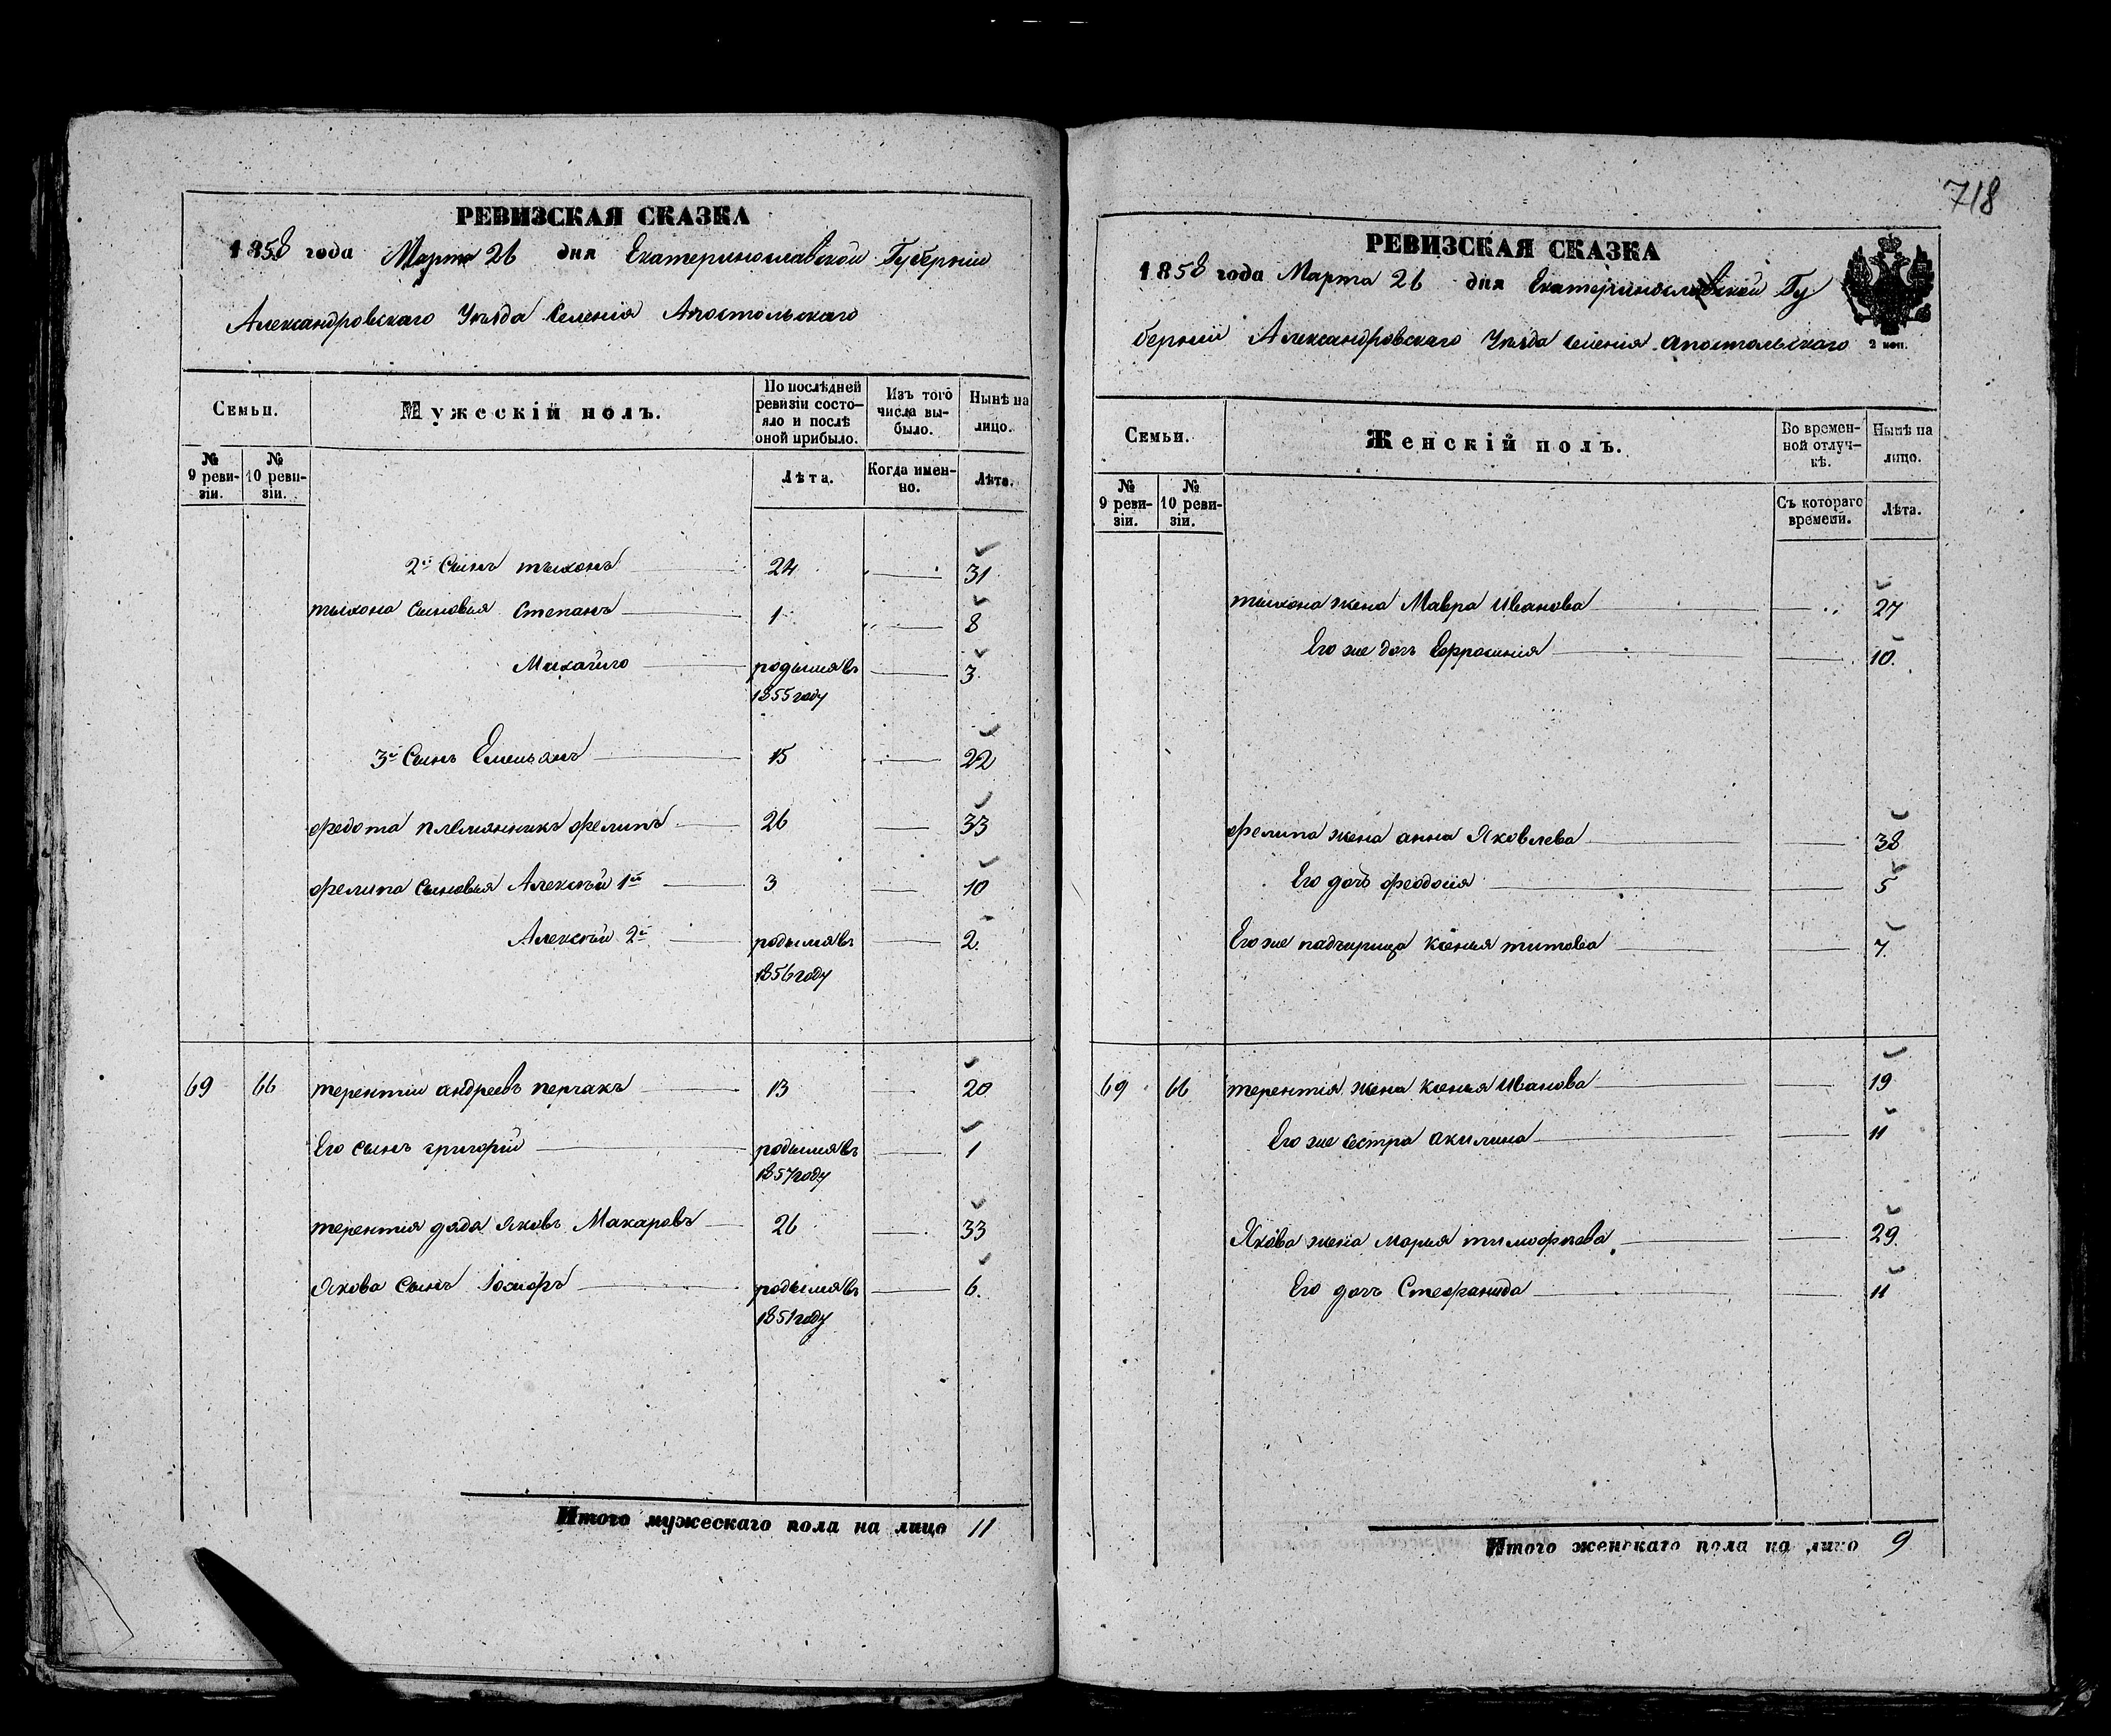 РЕВИЗСКАЯ СКАЗКА
1858 года Марта 26 дня Екатеринославской Губернии
Александровскаго Уѣзда Селенія Апостольскаго
Семьи.
Мужескій полъ.
По послѣдней ревизіи состо-
яло и послѣ оной прибыло.
Изъ того числа вы-
было.
Нынѣ на лицо.
№ 9 реви-
зіи.
№ 10 реви-
зіи.
Лѣта.
Когда имен-
но.
Лѣта.
2й Сынъ тыхонъ 24 31
тыхона сыновья Степанъ 1 8
Михайло родылся въ 3
1855 году
3й Сынъ Емельянъ 15 22
федота племянникъ фелипъ 26 33
фелипа сыновья Алексѣй 1й 3 10
Алексѣй 2й родылся въ 2
1856 году
69 66 терентій андреевъ перчакъ 13 20
Его сынъ григорій родылся въ 1
1857 году
терентія дядя яковъ Макаровъ 26 33
Якова сынъ Іосифъ родылся въ 6
1851 году
Итого мужескаго пола на лицо 11
718
РЕВИЗСКАЯ СКАЗКА
1858 года Марта 26 дня Екатеринославской Гу
берніи Александровскаго Уѣзда селенія апостольскаго 2 коп.
Семьи.
Женскій полъ.
Во времен-
ной отлуч-
кѣ.
Нынѣ на лицо.
№ 9 реви-
зіи.
№ 10 реви-
зіи.
Съ котораго времени.
Лѣта.
тыхона жена Мавра Иванова 27
Его же дочъ Ефросинія 10.
фелипа жена анна Яковлева 38
Его дочъ феодосія 5
Его же падчирица ксенья титова 7.
69 66 терентія жена ксенья Иванова 19
Его же сестра акилина 11
Якова жена мария тимофѣева 29.
Его дочъ Стефанида 11
Итого женскаго пола на лицо 9